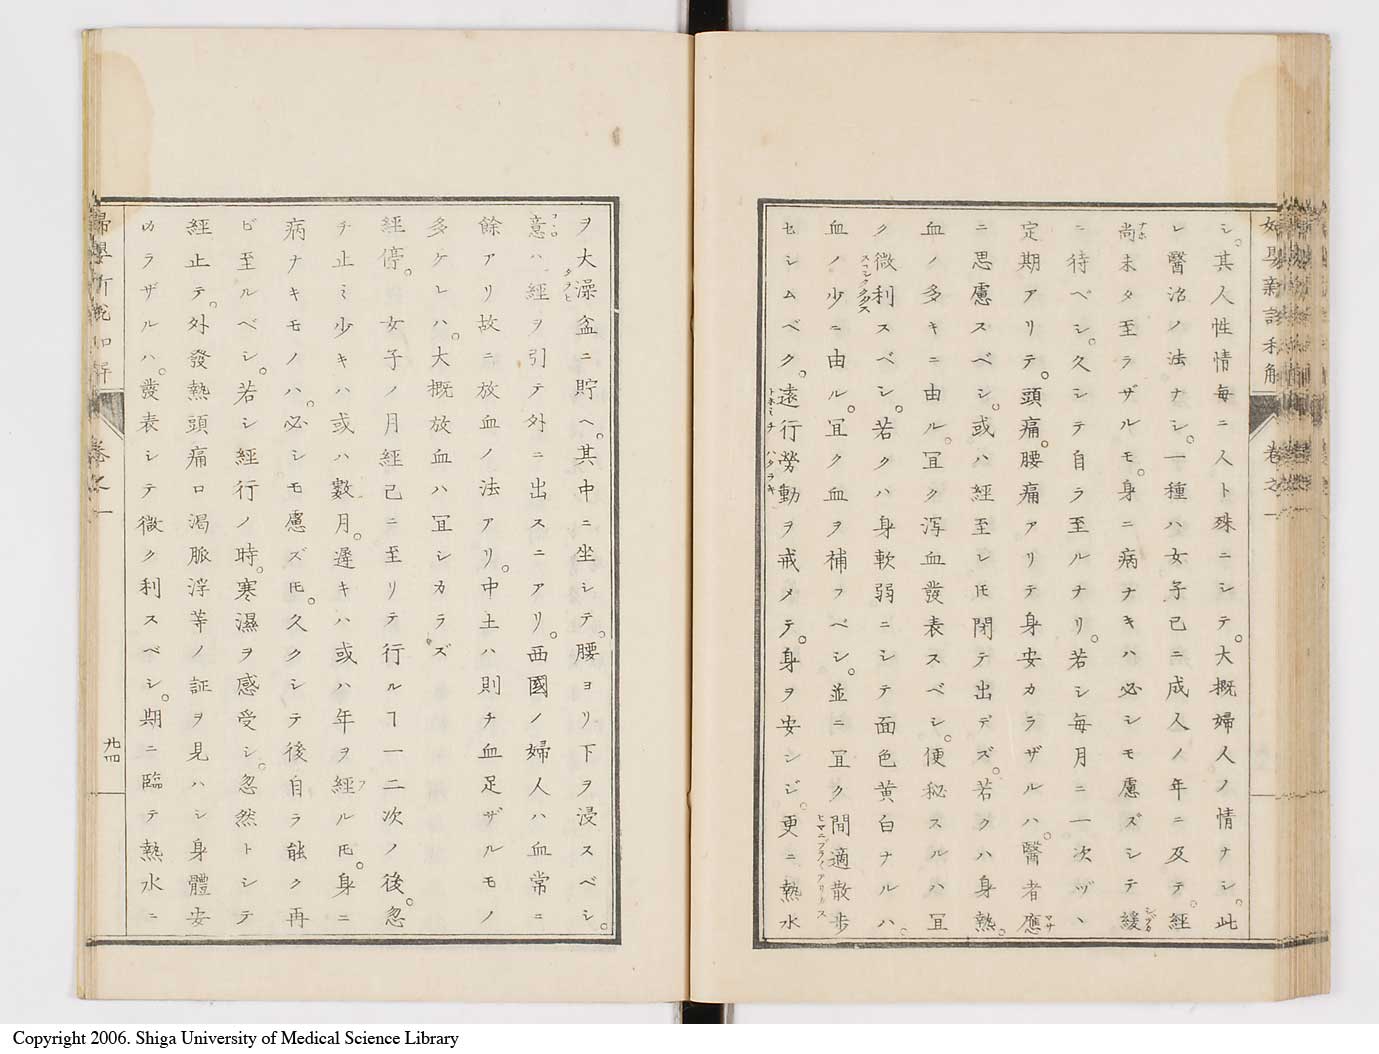 シ。其人性情毎ニ人ト殊ニシテ。大概婦人ノ情ナシ。此
レ醫治ノ法ナシ。一種ハ女子已ニ成人ノ年ニ及テ。經
尚未タ至ラザルモ。身ニ病ナキハ必シモ慮ズシテ緩
ニ待ベシ。久シテ自ラ至ルナリ。若シ毎月ニ一次ヅヽ
定期アリテ。頭痛。腰痛アリテ身安カラザルハ。醫者應
ニ思慮スベシ。或ハ經至シ𪜈閉テ出デズ。若クハ身熱。
血ノ多キニ由ル。冝ク瀉血發表スベシ。便秘スルハ冝
ク微利スベシ。若クハ身軟弱ニシテ面色黄白ナルハ。
血ノ少ニ由ル。冝ク血ヲ補フベシ。並ニ冝ク間適散歩
セシムベク。遠行勞動ヲ戒メテ。身ヲ安シジ。更ニ熱水
ヲ大澡盆ニ貯ヘ。其中ニ坐シテ。腰ヨリ下ヲ浸スベシ。
意ハ經ヲ引テ外ニ出スニアリ。西國ノ婦人ハ血常ニ
餘アリ故ニ放血ノ法アリ。中土ハ則チ血足ザルモノ
多ケレハ。大概放血ハ冝シカラズ
經停。女子ノ月經己ニ至リテ行ルヿ一二次ノ後。忽
チ止ミ少キハ或ハ數月。遲キハ或ハ年ヲ經ル𪜈。身ニ
病ナキモノハ。必シモ慮ズ𪜈。久クシテ後自ラ能ク再
ビ至ルベシ。若シ經行ノ時。寒濕ヲ感受シ。忽然トシテ
經止テ。外發熱頭痛口渴脈浮等ノ証ヲ見ハシ身體安
カラザルハ。發表シテ微ク利スベシ。期ニ臨テ熱水ニ
卷之一
九四
Copyright 2006. Shiga University of Medical Science Library